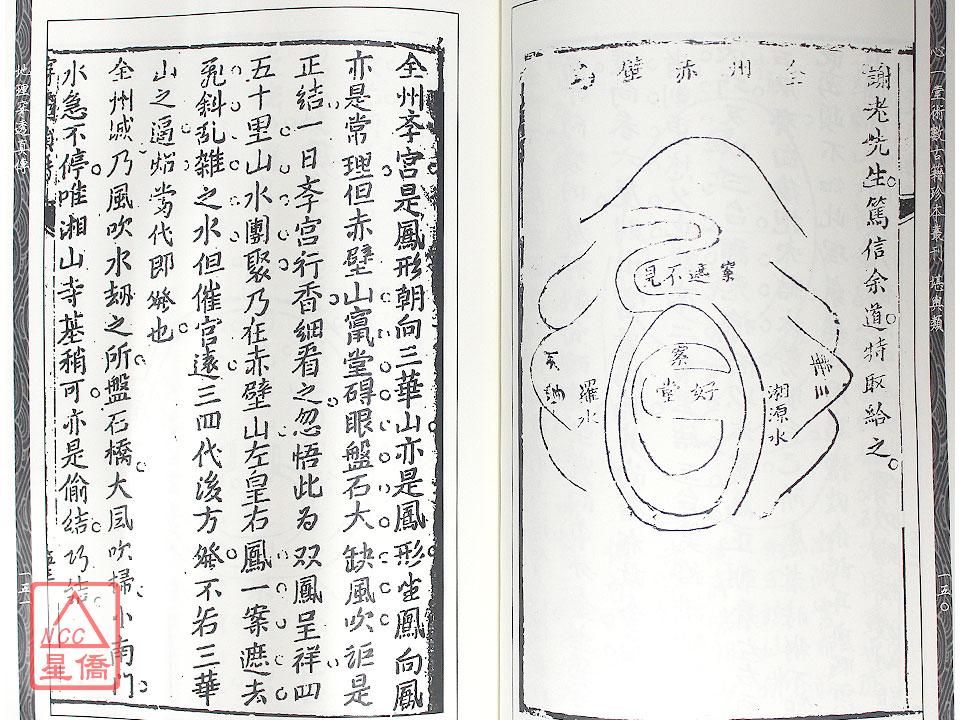 心一堂術數古籍珍本叢刊 堪輿類
一五〇
謝老先生篤信余道特取給之
全州赤壁
案遮不見
案
好堂
潮源水
羅水
全州李宮是鳳形朝向三華山亦是鳳形坐鳳向鳳
亦是常理但赤壁山富堂碍眼盤石大缺風吹詎是
正結一日李宮行香細看之忽悟此为双鳳呈祥四
五十里山水團聚乃在赤壁山左皇右鳳一案遮去
乱斜乱雜之水但催宮遠三四代後方發不若三華
山之逼炤當代即發也
全州城乃風吹水刼之所盤石橋大風吹掃小南門
水急不停唯湘山寺基稍可亦是偷結巧結
一五一
NCC
星僑